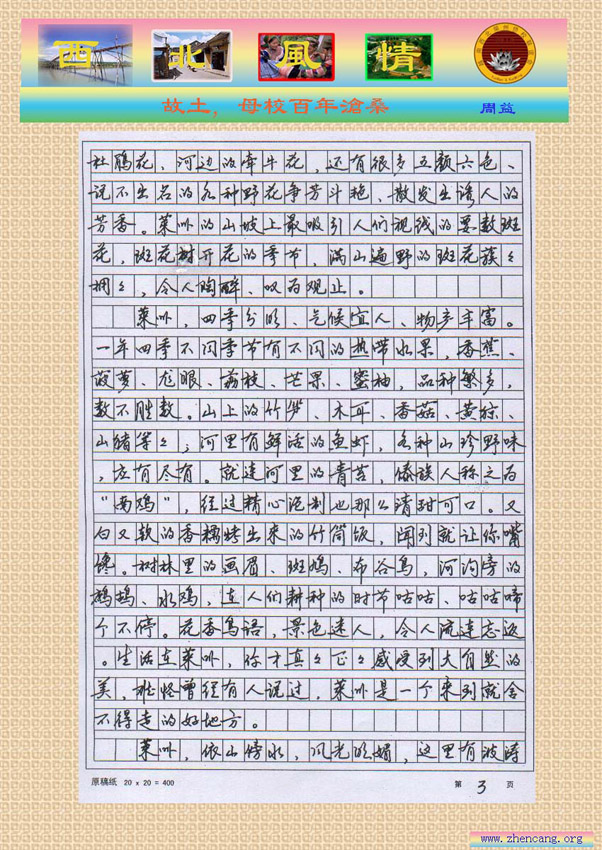 西北風情
故土，母校百年滄桑
周益
杜鹃花、河边的牵牛花，还有很多五颜六色、
说不出名的各种野花争芳斗艳、散发出诱人的
芳香。莱州的山坡上最吸引人们视线的要数斑
花，斑花树开花的季节，满山遍野的斑花簇々
拥々，令人陶醉、叹为观止。
莱州，四季分明、气候宜人、物产丰富。
一年四季不同季节有不同的热带水果，香蕉、
菠萝、龙眼、荔枝、芒果、蜜柚，品种繁多，
数不胜数。山上的竹笋、木耳、香菇、黄猄、
山猪等々；河里有鲜活的鱼虾，各种山珍野味
，应有尽有。就连河里的青苔，傣族人称之为
，经过精心泡制也那么清甜可口。又
白又软的香糯烤出来的竹筒饭，闻到就让你嘴
馋。树林里的画眉、斑鸠、布谷鸟，河沟旁的
鹧鸪、水鸡，在人们耕种的时节咕咕、咕咕啼
个不停。花香鸟语，景色迷人，令人流连忘返
。生活在莱州，你才真々正々感受到大自然的
美，难怪曾经有人说过，莱州是一个来到就舍
不得走的好地方。
莱州，依山傍水，风光明媚，这里有波涛
原稿纸 20 x 20 = 400
第 3 页
www.zhencang.org